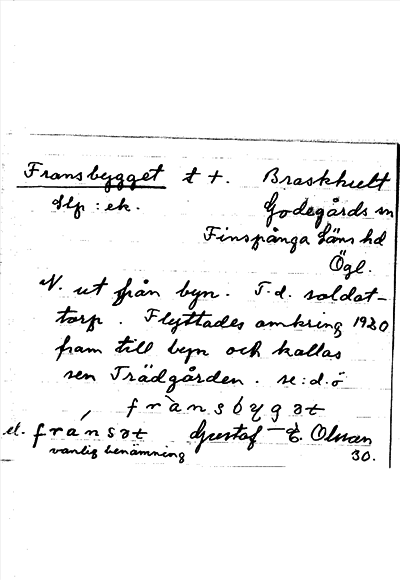 Fransbygget t +. Braskhult
Slp : ek. Godegårds sn
Finspånga läns hd
Ögl.
N. ut från byn. T.d. soldat-
torp. Flyttades omkring 1920
fram till byn och kallas
sen Trädgården. se:d.ö
frànsbygət
el. fránsət Gustaf E. Olsson
vanlig benämning 30.